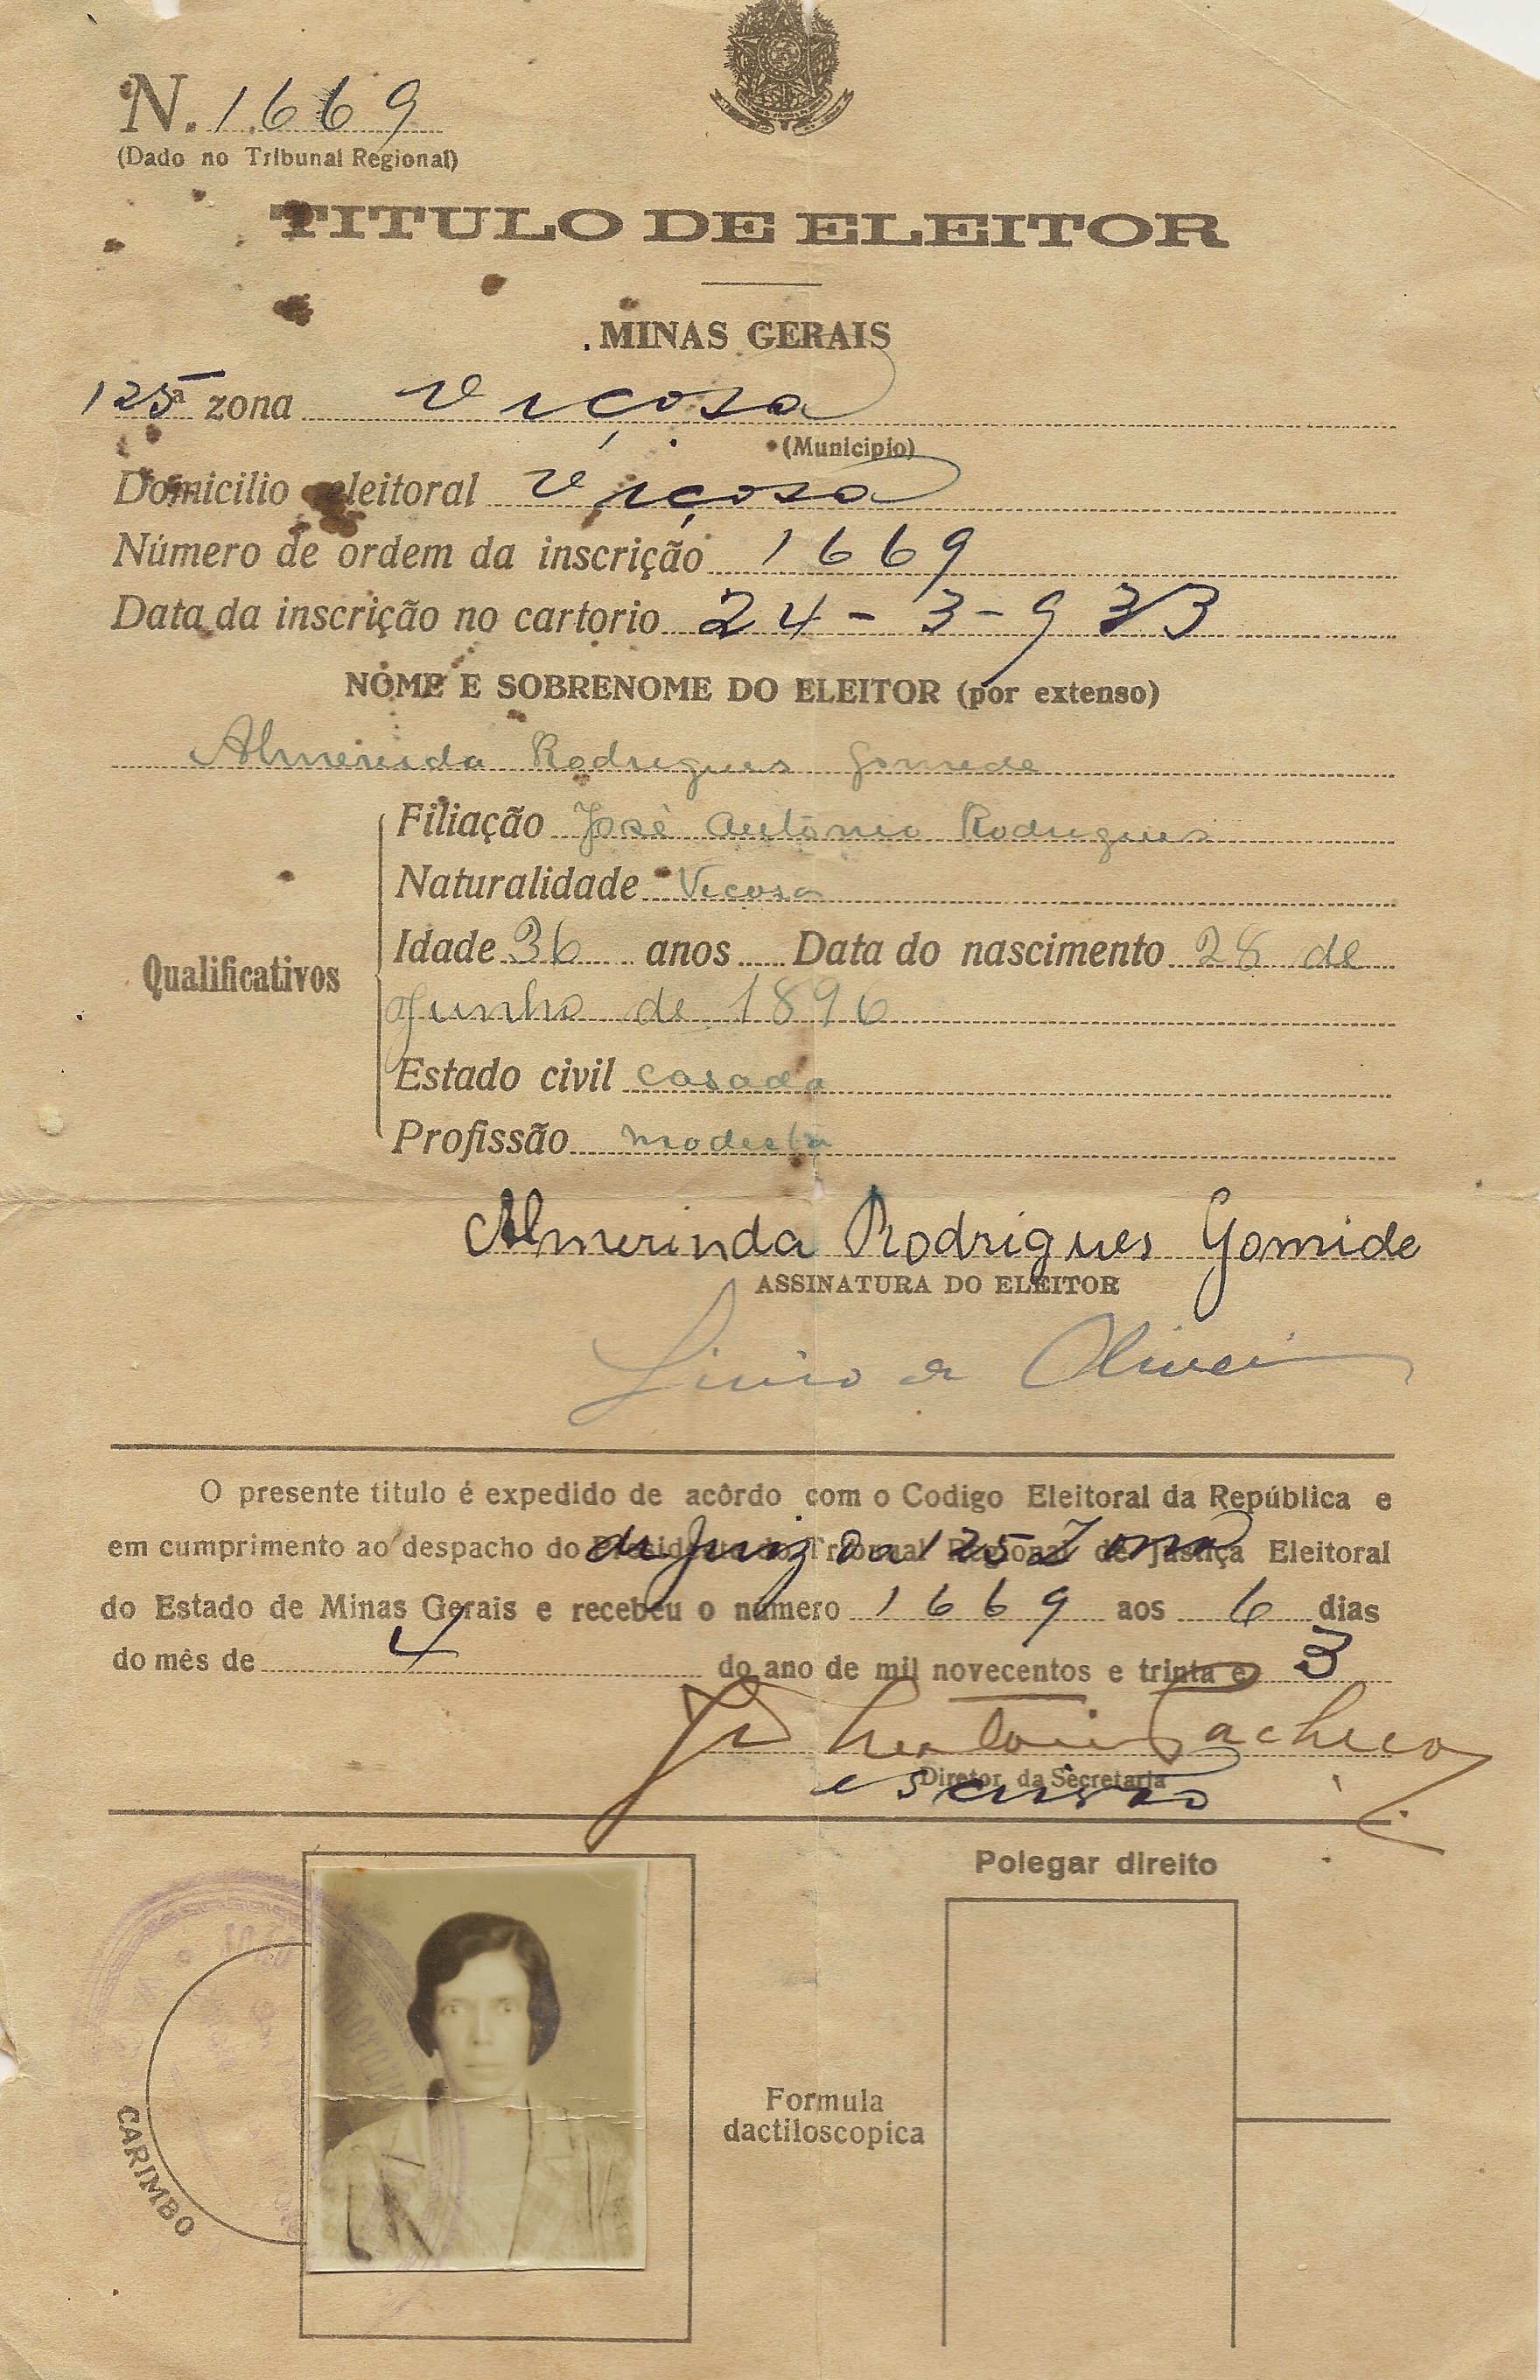 N. 1669
(Dado no Tribunal Regional)
TITULO DE ELEITOR
MINAS GERAIS
125ª zona Viçosa
(Municipio)
Domicilio eleitoral Viçosa
Número de ordem da inscrição 1669
Data da inscrição no cartorio 24-3-933
NOME E SOBRENOME DO ELEITOR (por extenso)
Almerinda Rodrigues Gomide
Filiação José Antônio Rodrigues
Naturalidade Viçosa
Qualificativos
Idade 36 anos Data do nascimento 28 de
Junho de 1896
Estado civil casada
Profissão modista
Almerinda Rodrigues Gomide
ASSINATURA DO ELEITOR
Livio de Oliveira
O presente titulo é expedido de acôrdo com o Codigo Eleitoral da República e
em cumprimento ao despacho do Presidente do Tribunal Regional de Justiça Eleitoral
do Juiz da 125 Zona
do Estado de Minas Gerais e recebeu o número 1669 aos 6 dias
do mês de 4 do ano de mil novecentos e trinta e 3
Antonio Pacheco
Diretor da Secretaria
escrivão
Polegar direito
Formula
dactiloscopica
CARIMBO